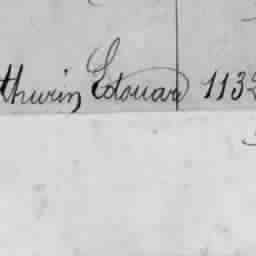 thurin Edouard 1132